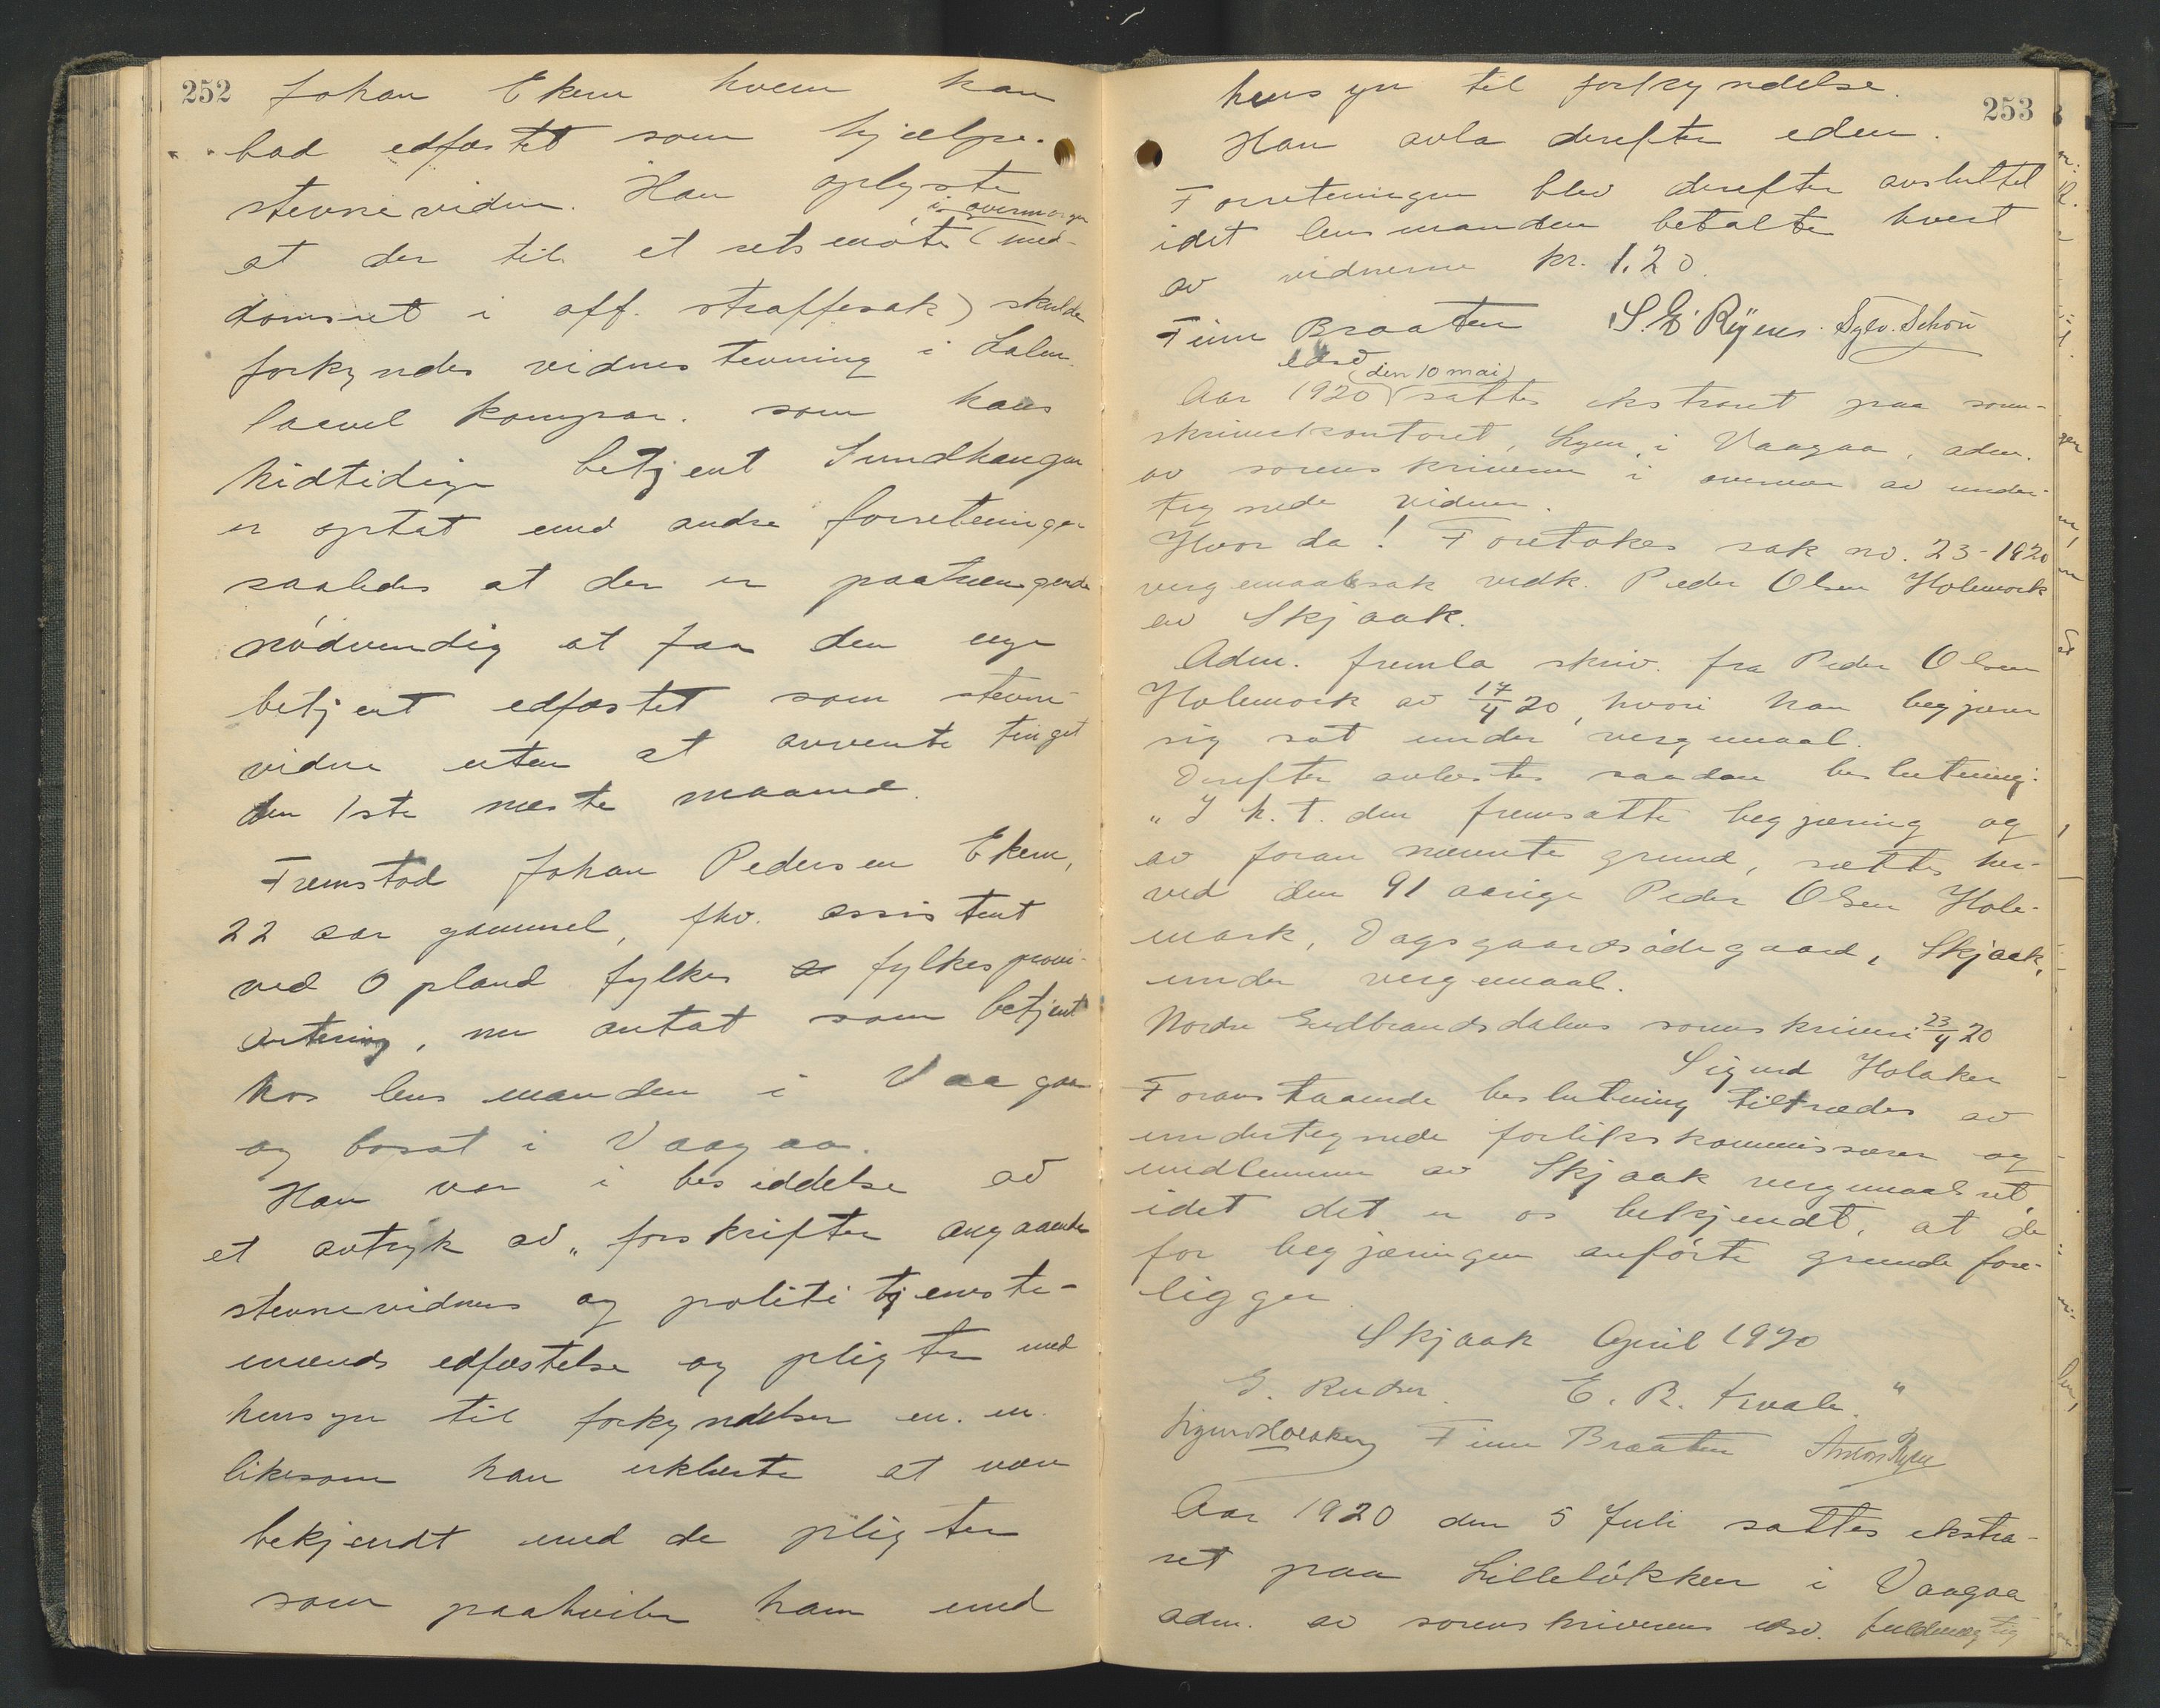 252
Johan Ekern hvem han
bad edfæstet som hjælpe-
stevnevidne. Han oplyste
i overmorgen
at der til et retsmøte (med-
domsret i off. straffesak) skulde
forkyndes vidnestevning i Lalm
saavel kompar. som hans
hidtidige betjent Sundhaugen
er optat med andre forretninger
saaledes at der er paatrængende
nødvendig at faa den nye
betjent edfæstet som stevne-
vidne uten at avvente tinget
den 1ste næste maaned.
Fremstod Johan Pedersen Ekern,
22 aar gammel, fhv. assistent
ved Opland fylkes fylkesprovi-
antering, nu antat som betjent
hos lensmanden i Vaagaa
og bosat i Vaagaa.
Han var i besiddelse av
et avtryk av "forskrifter angaaende
stevnevidners og politi tjeneste-
mænds edfæstelse og pligter med
hensyn til forkyndelser m. m.
likesom han erklærte at være
bekjendt med de pligter
som paahviler ham med
253
hensyn til forkyndelse.
Han avla derefter eden.
Forretningen blev derefter avsluttet
idet lensmanden betalte hvert
av vidnerne kr. 1.20.
Finn Braaten S. E. Ryen Sylv. Schou
edsv
(den 10 mai)
Aar 1920 sattes ekstraret paa soren-
skriverkontoret, Lyen, i Vaagaa, adm.
av sorenskriveren i overvær av under-
tegnede vidner.
Hvor da! Foretokes sak no. 23-1920
vergemaalsak vedk. Peder Olsen Holemork
av Skjaak.
Adm. fremla skriv. fra Peder Olsen
Holemork av 17/4 20, hvori han begjærer
sig sat under vergemaal.
Derefter avlæstes saadan beslutning:
"I h. t. den fremsatte begjæring og
av foran nævnte grund, sættes her-
ved den 91 aarige Peder Olsen Hole-
mark, Dagsgaardsødegaard, Skjaak,
under vergemaal.
Nordre Gudbrandsdalens sorenskriveri 23/4 20
Sigurd Holaker
Foranstaaende beslutning tiltrædes av
undertegnede forlikskommissærer og
medlemmer av Skjaak vergemaalsret,
idet det er os bekjendt, at de
for begjæringen anførte grunde fore-
ligger
Skjaak April 1920
E. R. Kvale. "
Sigurd Holaker Finn Braaten Anton Ryen
Aar 1920 den 5 Juli sattes ekstra-
ret paa Lilleløkken i Vaagaa
adm. av sorenskriverens edsv. fuldmægtig